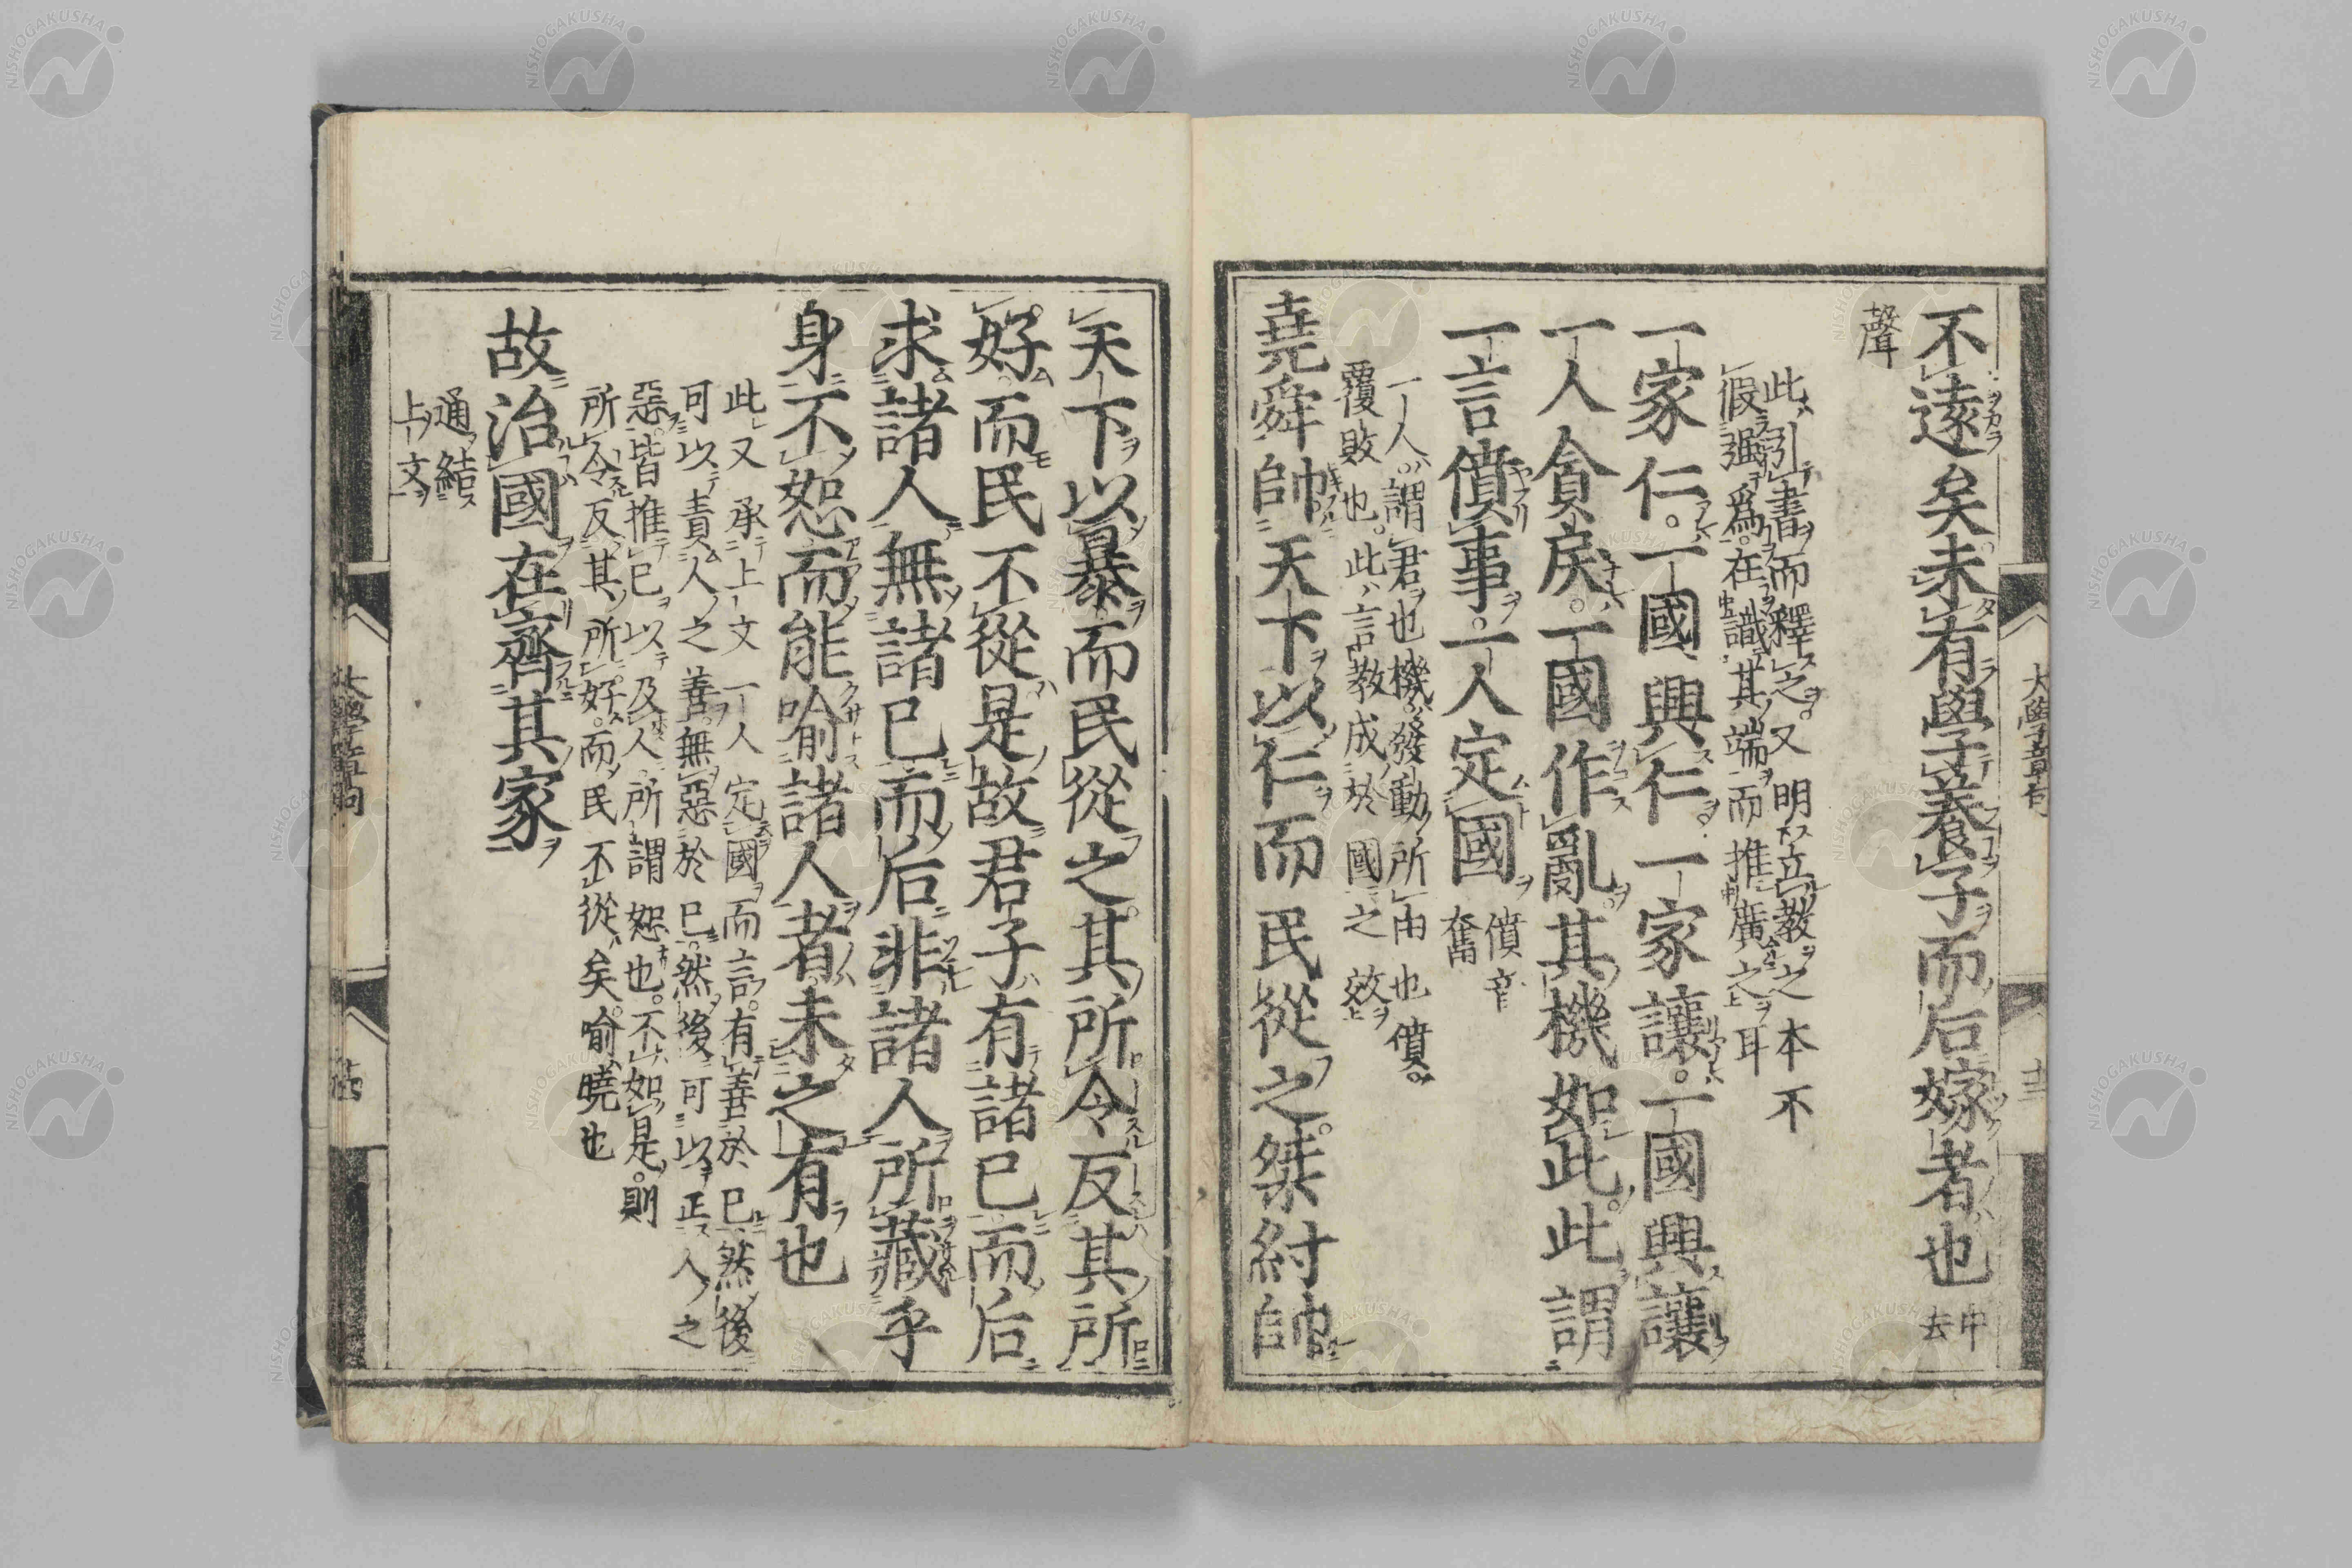 大學章句
不遠矣未有學養子而后嫁者也 中去
聲
此引書而釋之又明立教之本不
假强爲在識其端而推廣之耳
一家仁一國興仁一家讓一國興讓
一人貪戾一國作亂其機如此此謂
一言僨事一人定國 僨音奮
一人謂君也機發動所由也僨
覆敗也此言教成於國之效
堯舜帥天下以仁而民從之桀紂帥
天下以暴而民從之其所令反其所
好而民不從是故君子有諸己而后
求諸人無諸己而后非諸人所藏乎
身不恕而能喻諸人者未之有也
此又承上文一人定國而言有善於己然後
可以責人之善無惡於己然後可以正人之
惡皆推己以及人所謂恕也不如是則
所令反其所好而民不從矣喻曉也
故治國在齊其家
通結
上文
大學章句
NISHOGAKUSHA